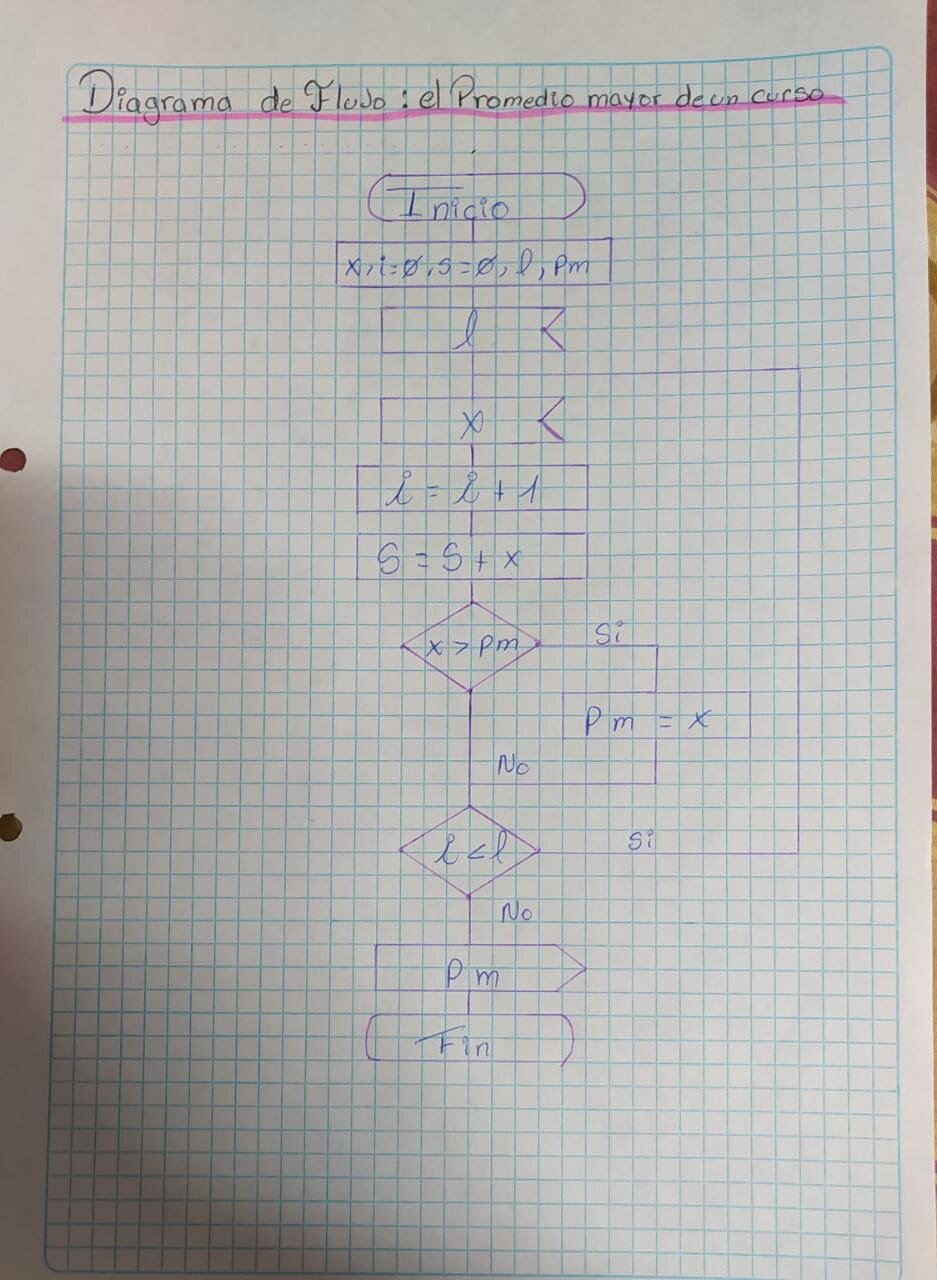 Diagrama de Flujo: el Promedio mayor de un curso
Inicio
x, i=0, s=0, l, pm
l
x
i = i + 1
S = S + x
x > pm
Si
Pm = x
No
i < l
Si
No
Pm
Fin